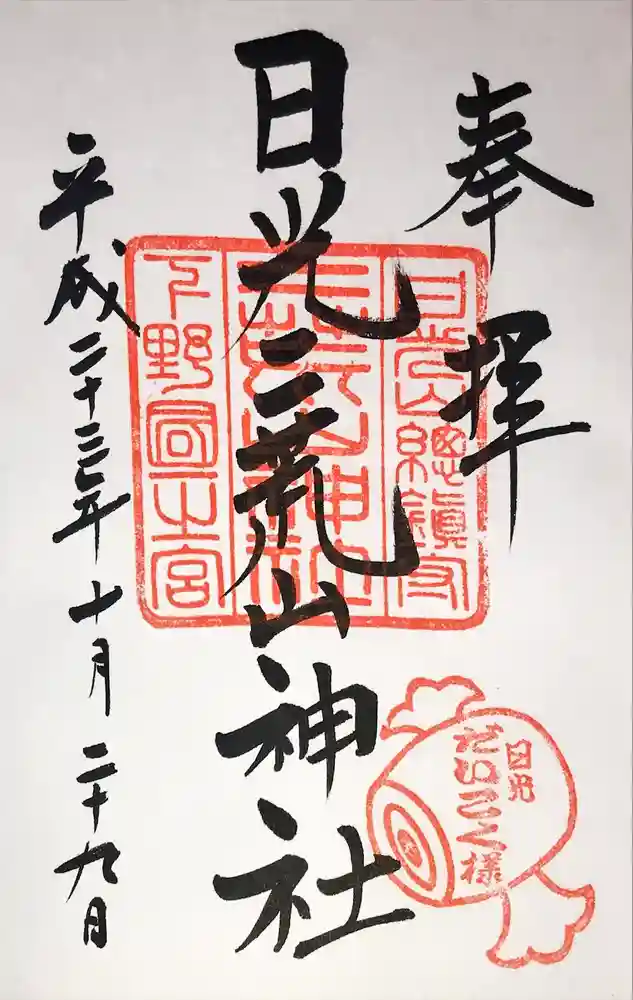 奉拝
日光二荒山神社
平成二十三年十月二十九日
日光山總鎮守
二荒山神社
下野國一之宮
日光
だいこく様